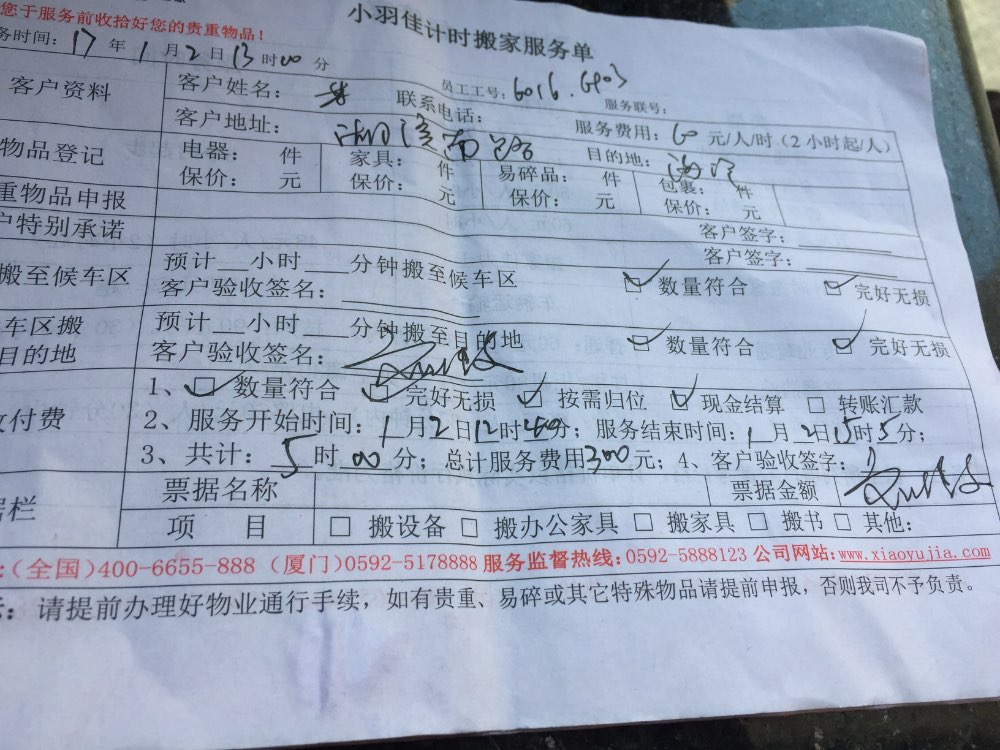 您于服务前收拾好您的贵重物品！
小羽佳计时搬家服务单
务时间：17年1月2日13时00分
员工工号：6016.6903
服务联号：
客户资料
客户姓名：
联系电话：
服务费用：60元/人/时（2小时起/人）
客户地址：湖滨南路
目的地：海沧
物品登记
电器： 件 家具： 件 易碎品： 件 包裹： 件
保价： 元 保价： 元 保价： 元 保价： 元
重物品申报
客户签字：
户特别承诺
客户签字：
搬至候车区
预计 小时 分钟搬至候车区
客户验收签名：
数量符合 完好无损
车区搬
目的地
预计 小时 分钟搬至目的地
客户验收签名：
数量符合 完好无损
付费
1、 数量符合 完好无损 按需归位 现金结算 转账汇款
2、服务开始时间：1月2日12时40分；服务结束时间：1月2日15时5分；
3、共计：5时00分；总计服务费用300元；4、客户验收签字：
栏
票据名称
票据金额
项 目 搬设备 搬办公家具 搬家具 搬书 其他：
：(全国)400-6655-888 (厦门)0592-5178888 服务监督热线：0592-5888123 公司网站：www.xiaoyujia.com
：请提前办理好物业通行手续，如有贵重、易碎或其它特殊物品请提前申报，否则我司不予负责。